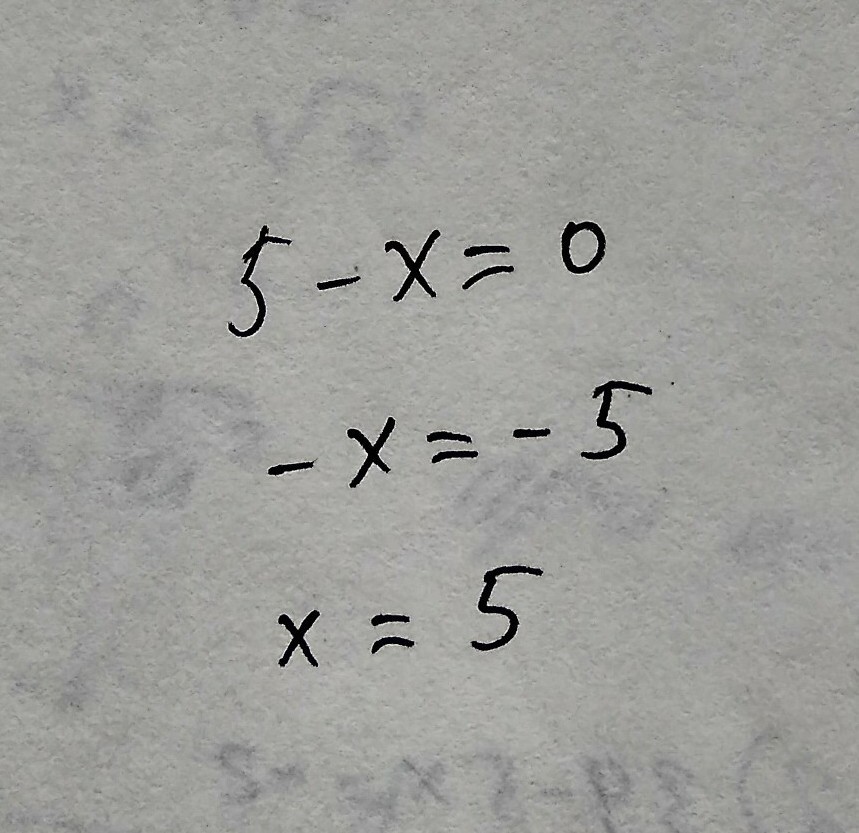 5 - x = 0
- x = - 5
x = 5